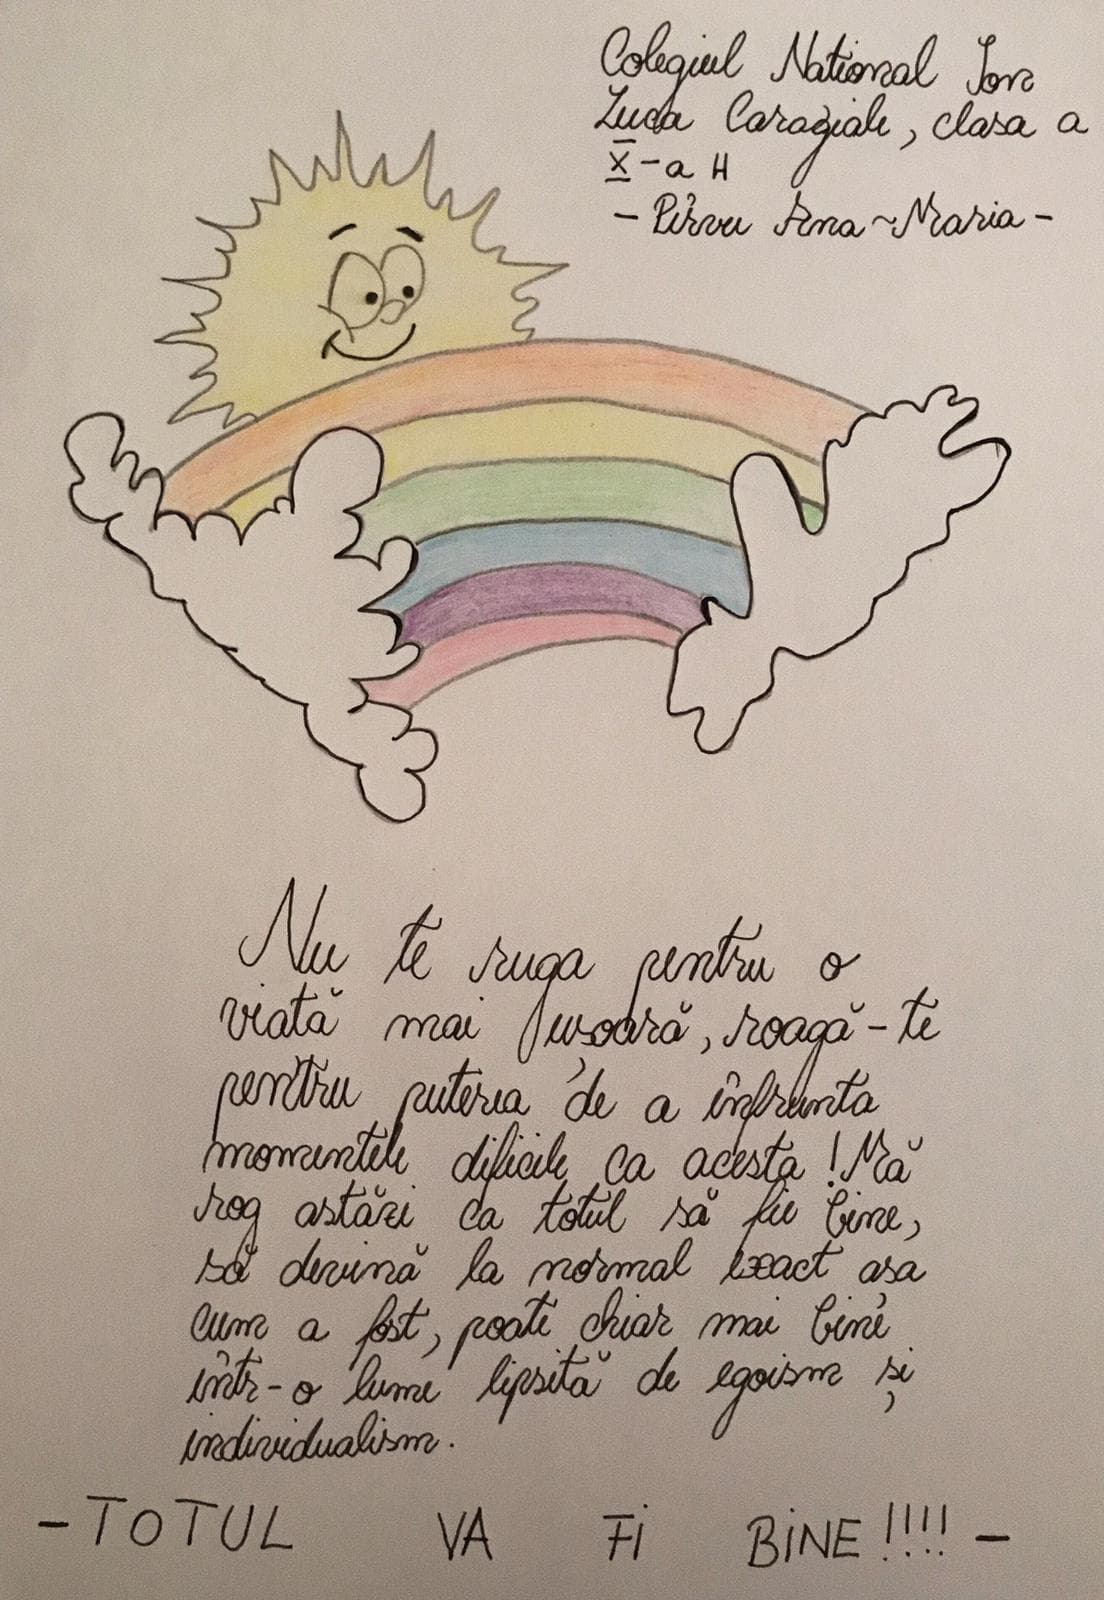 Colegiul National Ion
Luca Caragiale, clasa a
X-a H
- Pîrvu Ana~Maria -
Nu te ruga pentru o
viată mai ușoară, roagă-te
pentru puterea de a înfrunta
momentele dificile ca acesta! Mă
rog astăzi ca totul să fie bine,
să devină la normal exact așa
cum a fost, poate chiar mai bine
într-o lume lipsită de egoism și
individualism.
- TOTUL VA FI BINE!!!! -